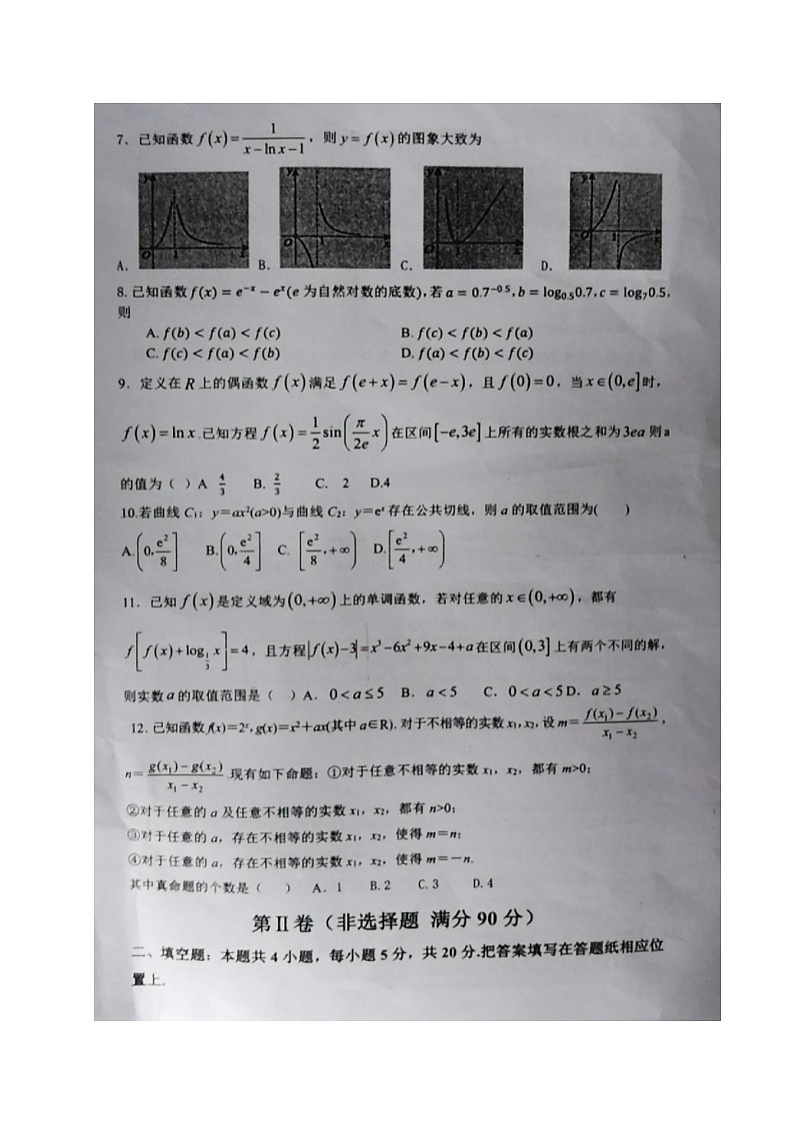 7、已知函数 f(x)=1/(x−ln x−1)，则 y=f(x) 的图象大致为
A. B. C. D.
8.已知函数f(x)=e^{-x}−e^x(e 为自然对数的底数),若a=0.7^{-0.5},b=log_{0.5}0.7,c=log_7 0.5,
则
A. f(b)<f(a)<f(c) B. f(c)<f(b)<f(a)
C. f(c)<f(a)<f(b) D. f(a)<f(b)<f(c)
9．定义在 R 上的偶函数 f(x) 满足 f(e+x)=f(e−x)，且 f(0)=0，当 x∈(0,e] 时，
f(x)=ln x.已知方程 f(x)=1/2 sin(π/2e x) 在区间[−e,3e]上所有的实数根之和为3ea 则 a
的值为（ ）A 4/3 B. 2/3 C. 2 D.4
10.若曲线 C₁：y＝ax²(a>0)与曲线 C₂：y＝e^x 存在公共切线，则 a 的取值范围为( )
A.(0, e²/8] B.(0, e²/4] C. [e²/8, +∞) D.[e²/4, +∞)
11．已知 f(x) 是定义域为 (0,+∞) 上的单调函数，若对任意的 x∈(0,+∞)，都有
f[f(x)+log_{1/3} x]=4，且方程|f(x)−3|=x³−6x²+9x−4+a 在区间(0,3]上有两个不同的解，
则实数 a 的取值范围是（ ）A. 0<a≤5 B. a<5 C. 0<a<5 D. a≥5
12. 已知函数 f(x)=2^x, g(x)=x²＋ax(其中 a∈R). 对于不相等的实数 x₁, x₂, 设 m＝(f(x₁)−f(x₂))/(x₁−x₂)，
n＝(g(x₁)−g(x₂))/(x₁−x₂).现有如下命题：①对于任意不相等的实数 x₁，x₂，都有 m>0;
②对于任意的 a 及任意不相等的实数 x₁，x₂，都有 n>0;
③对于任意的 a，存在不相等的实数 x₁，x₂，使得 m＝n;
④对于任意的 a，存在不相等的实数 x₁，x₂，使得 m＝－n.
其中真命题的个数是（ ） A. 1 B. 2 C. 3 D. 4
第Ⅱ卷（非选择题 满分 90 分）
二、填空题：本题共 4 小题，每小题 5 分，共 20 分.把答案填写在答题纸相应位
置上.